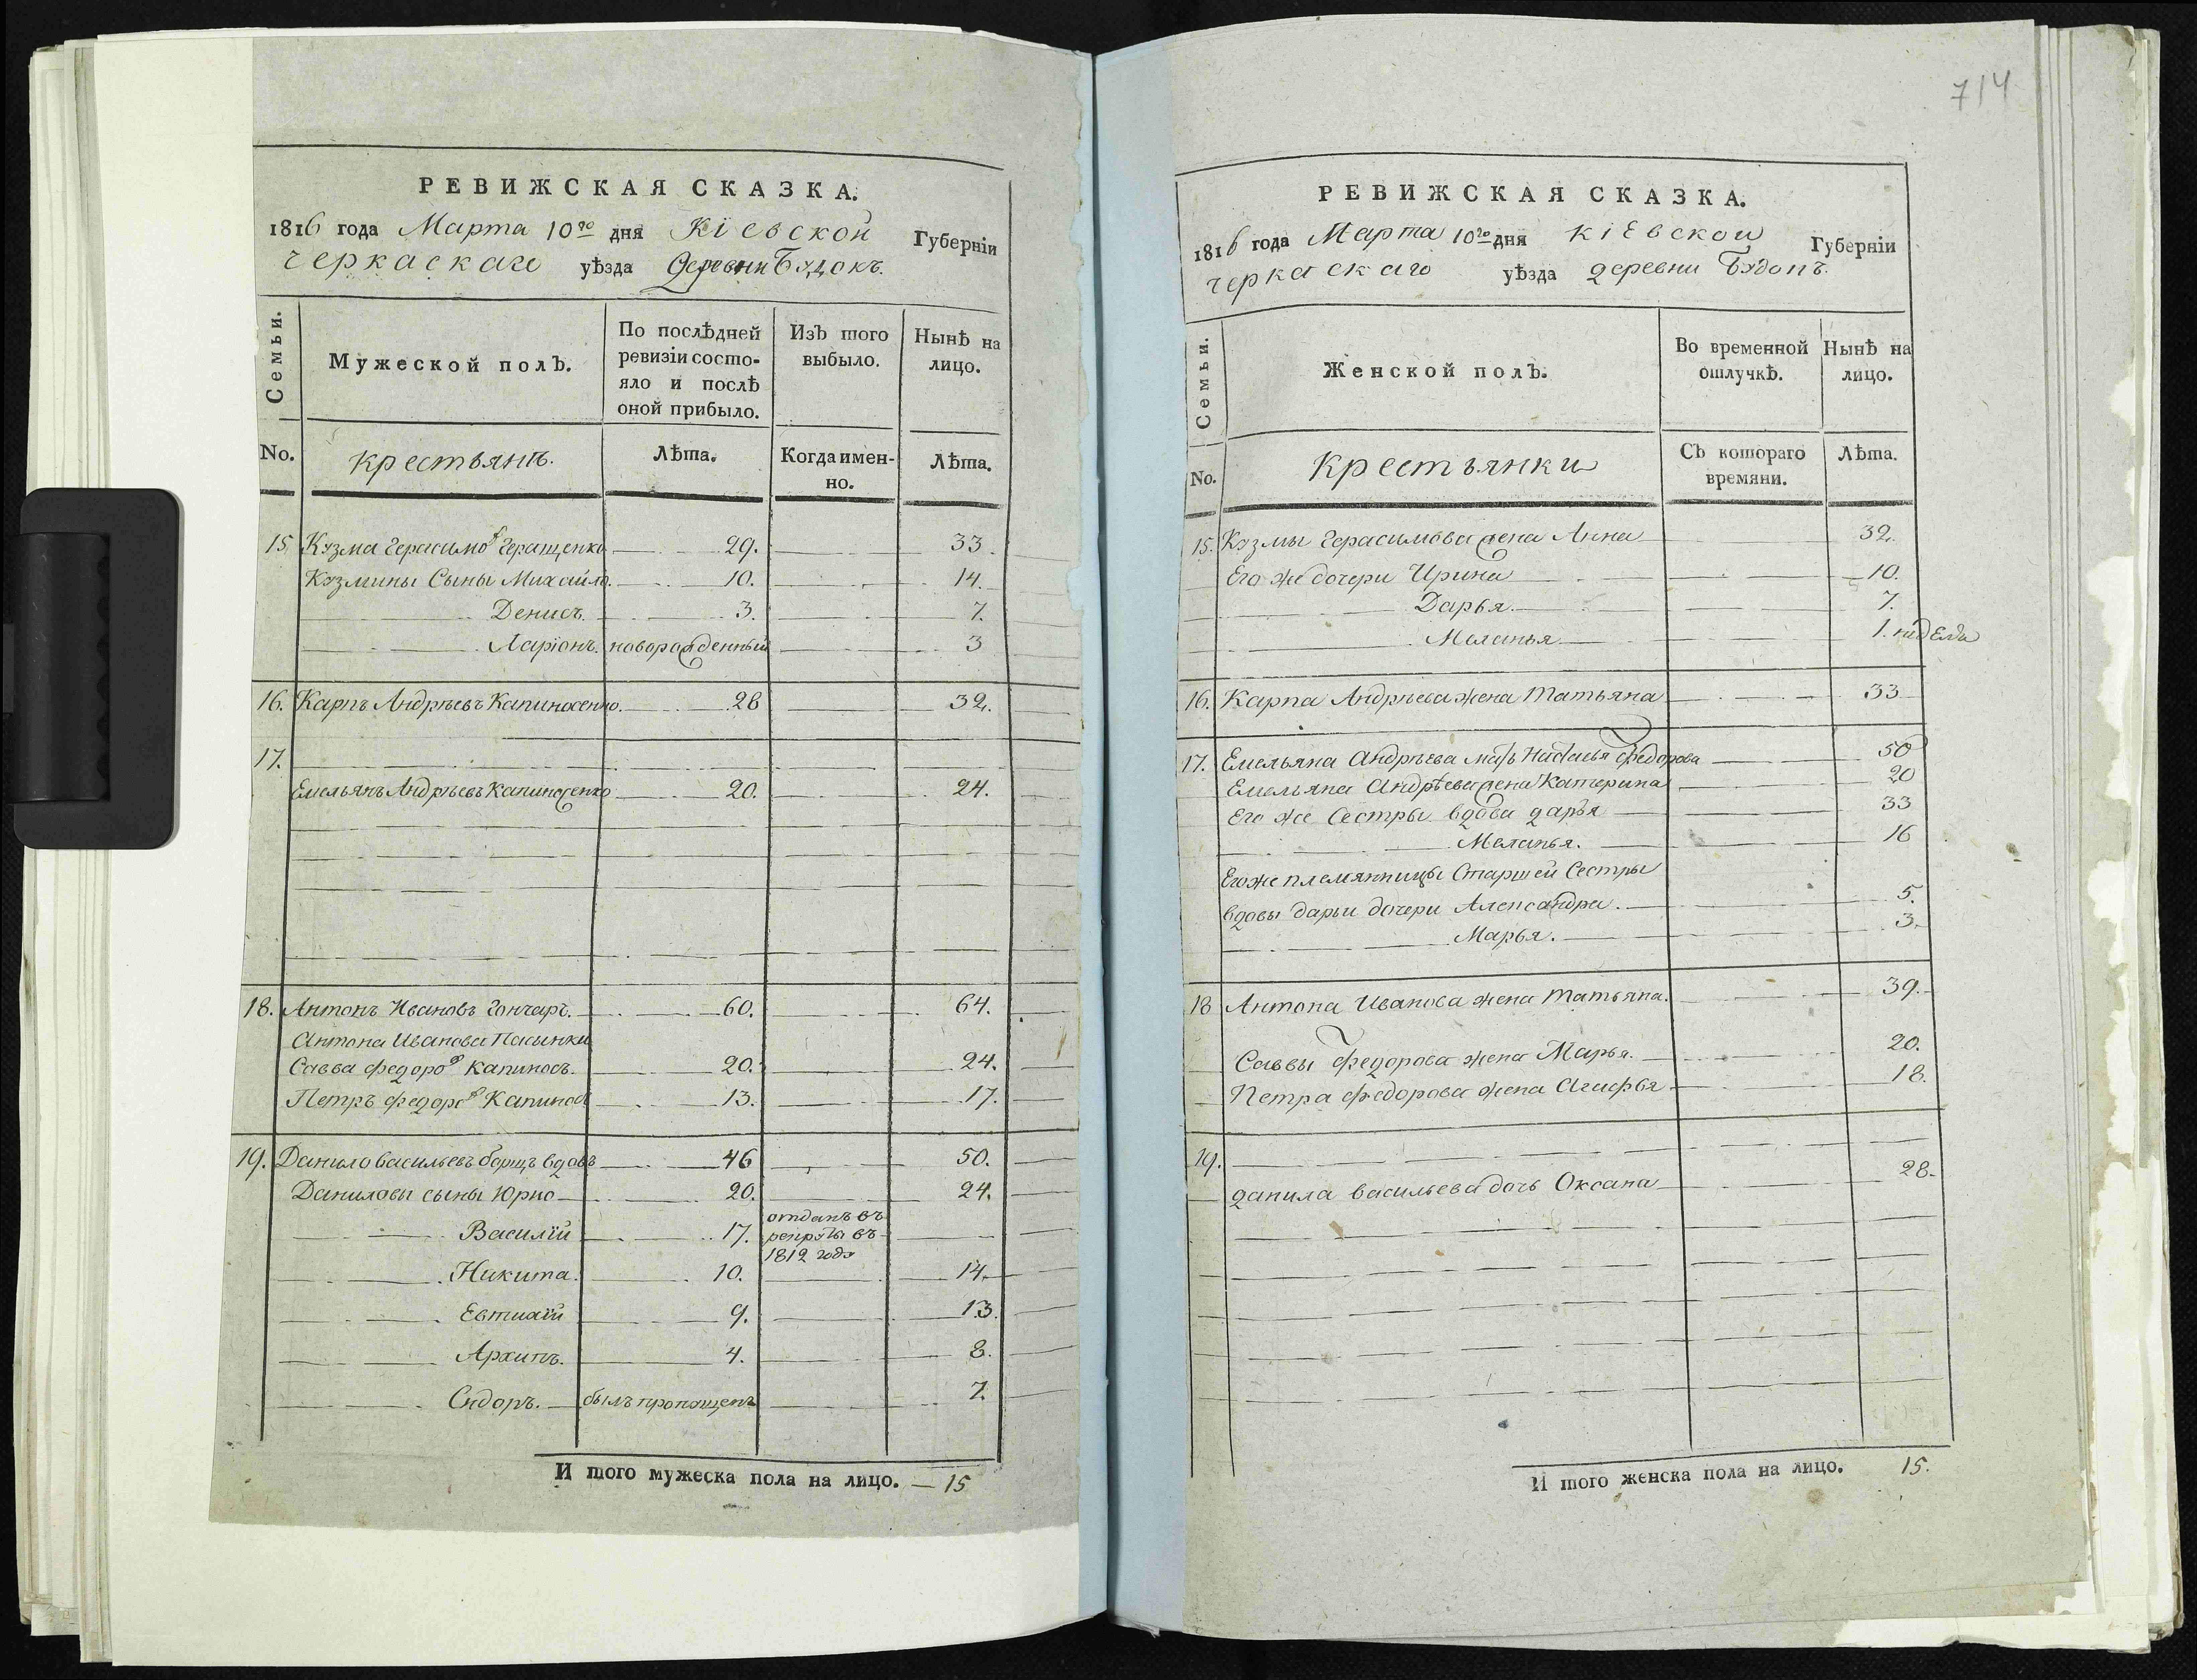 РЕВИЖСКАЯ СКАЗКА.
1816 года Марта 10го дня Кіевской Губерніи
черкаскаго уѣзда Деревни Будокъ.
Семьи.
Мужеской полъ.
По послѣдней ревизіи состояло и послѣ оной прибыло.
Изъ того выбыло.
Нынѣ на лицо.
No.
крестьянъ.
Лѣта.
Когда имен-но.
Лѣта.
15 Кузма Герасимов Геращенко 29. 33.
Кузмины Сыны Михайло. 10. 14.
Денисъ. 3. 7.
Ларіонъ. новорожденный 3
16. Карпъ Андрѣевъ Капиносенко. 28 32.
17.
Емельянъ Андрѣевъ Капиносенко 20. 24.
18. Антонъ Ивановъ Гончаръ. 60. 64.
Антона Иванова Пасынки
Савва федоров Капиносъ. 20. 24.
Петръ федоров Капинос 13. 17.
19. Данило васильевъ борщъ вдовъ 46 50.
Даниловы сыны Юрко 20. 24.
Василій 17. отданъ въ рекруты въ 1812 году
Никита. 10. 14.
Евтихій 9. 13.
Архипъ. 4. 8.
Сидоръ. былъ пропущенъ 7.
И того мужеска пола на лицо. — 15
714
РЕВИЖСКАЯ СКАЗКА.
1816 года Марта 10го дня кіевской Губерніи
черкаскаго уѣзда деревни Будокъ.
Семьи.
Женской полъ.
Во временной отлучкѣ.
Нынѣ на лицо.
No.
Крестьянки
Съ котораго времяни.
Лѣта.
15. Кузмы Герасимова жена Анна 32.
Его же дочери Ирина 10.
Дарья. 7.
Меланья 1. неделя
16. Карпа Андрѣева жена Татьяна 33
17. Емельяна Андрѣева мать Наталья федорова 50
Емельяна Андрѣева жена Катерина 20
Его же Сестры вдова дарья 33
Меланья. 16
Его же племянницы Старшей Сестры
вдовы дарьи дочери Александра. 5.
Марья. 3.
18 Антона Иванова жена Татьяна. 39.
Саввы федорова жена Марья. 20.
Петра федорова жена Агафья 18.
19.
данила васильева дочь Оксана 28.
И того женска пола на лицо. 15.